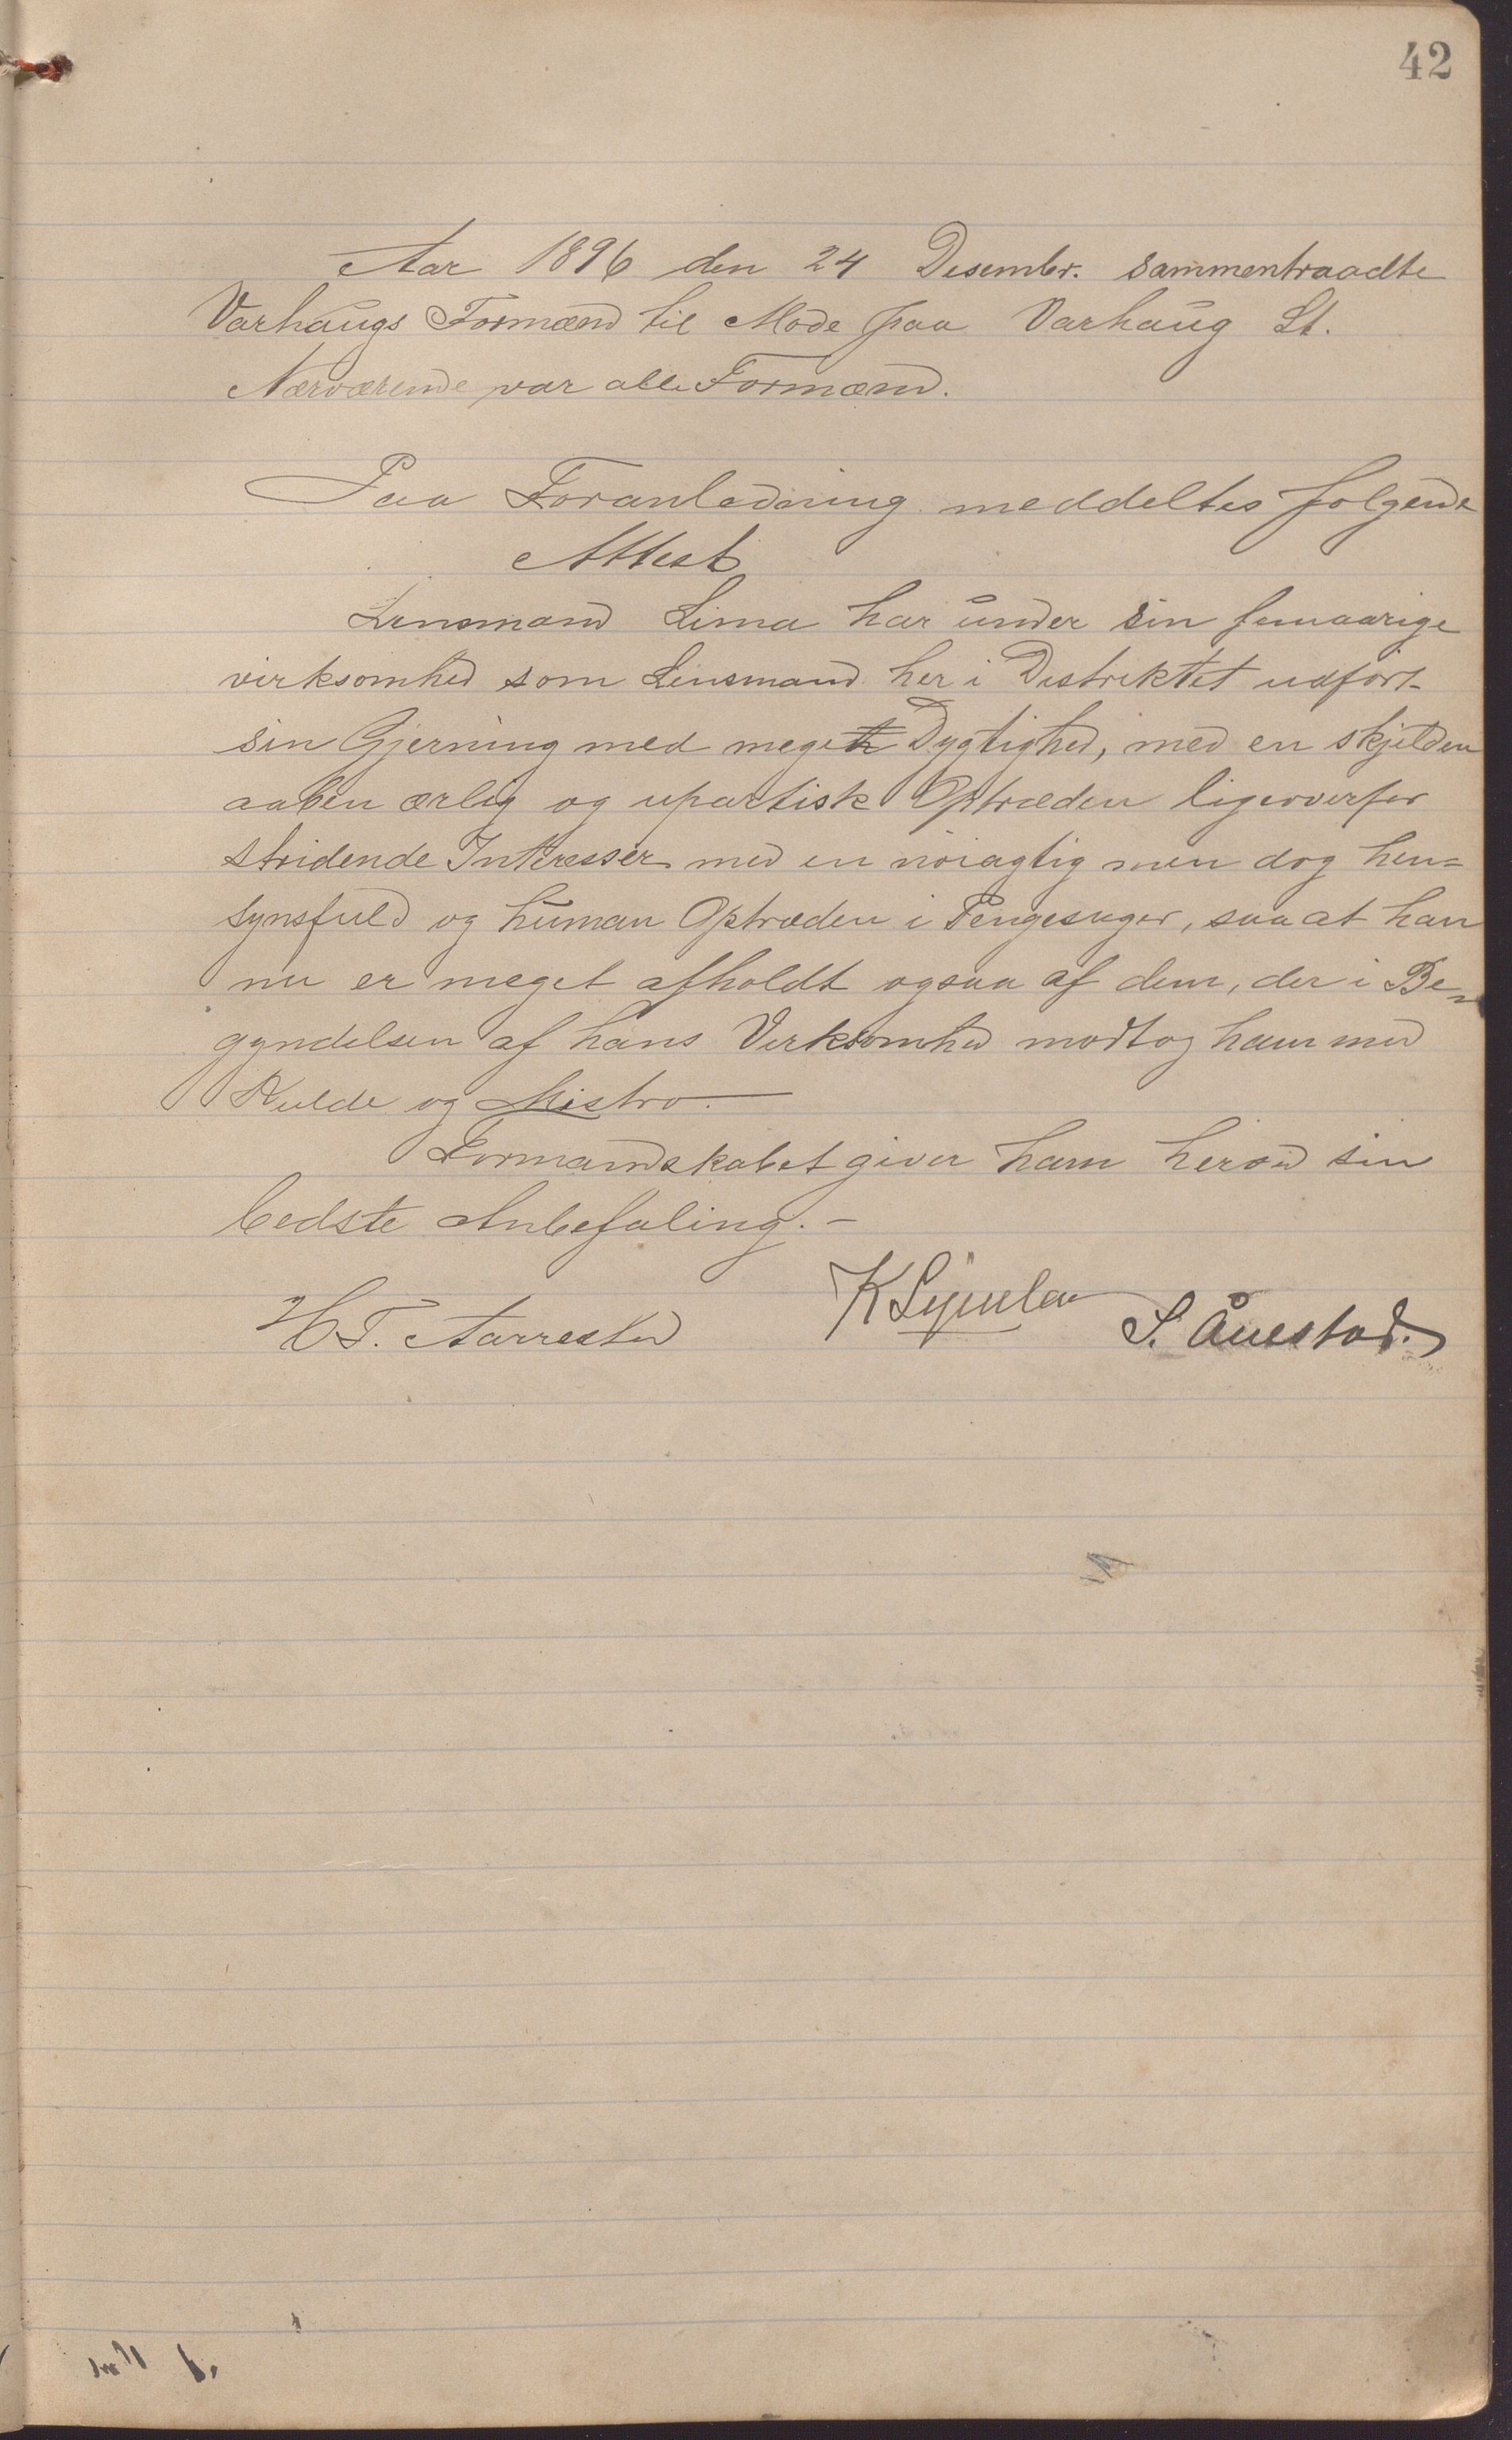 42
Aar 1896 den 24 Desembr. sammentraadte
Varhaugs Formænd til Mode paa Varhaug St.
Nærværende var alle Formænd.
Paa Foranledning meddeltes folgende
Attest
Lensmand Lima har under sin femaarige
virksomhed som Lensmand her i Distriktet udført
sin Gjerning med megen Dygtighed, med en skjelden
aaben ærlig og upartisk Optræden ligeoverfor
stridende Interesser med en nøiagtig men dog hen=
synsfuld og human Optræden i Pengesager, saa at han
nu er meget afholdt ogsaa af dem, der i Be=
gyndelsen af hans Virksomhed modtog ham med
Kulde og Mistro.
Formandskabet giver ham herved sin
bedste Anbefaling. –
H T. Aarrestad
K
S. Auestad.